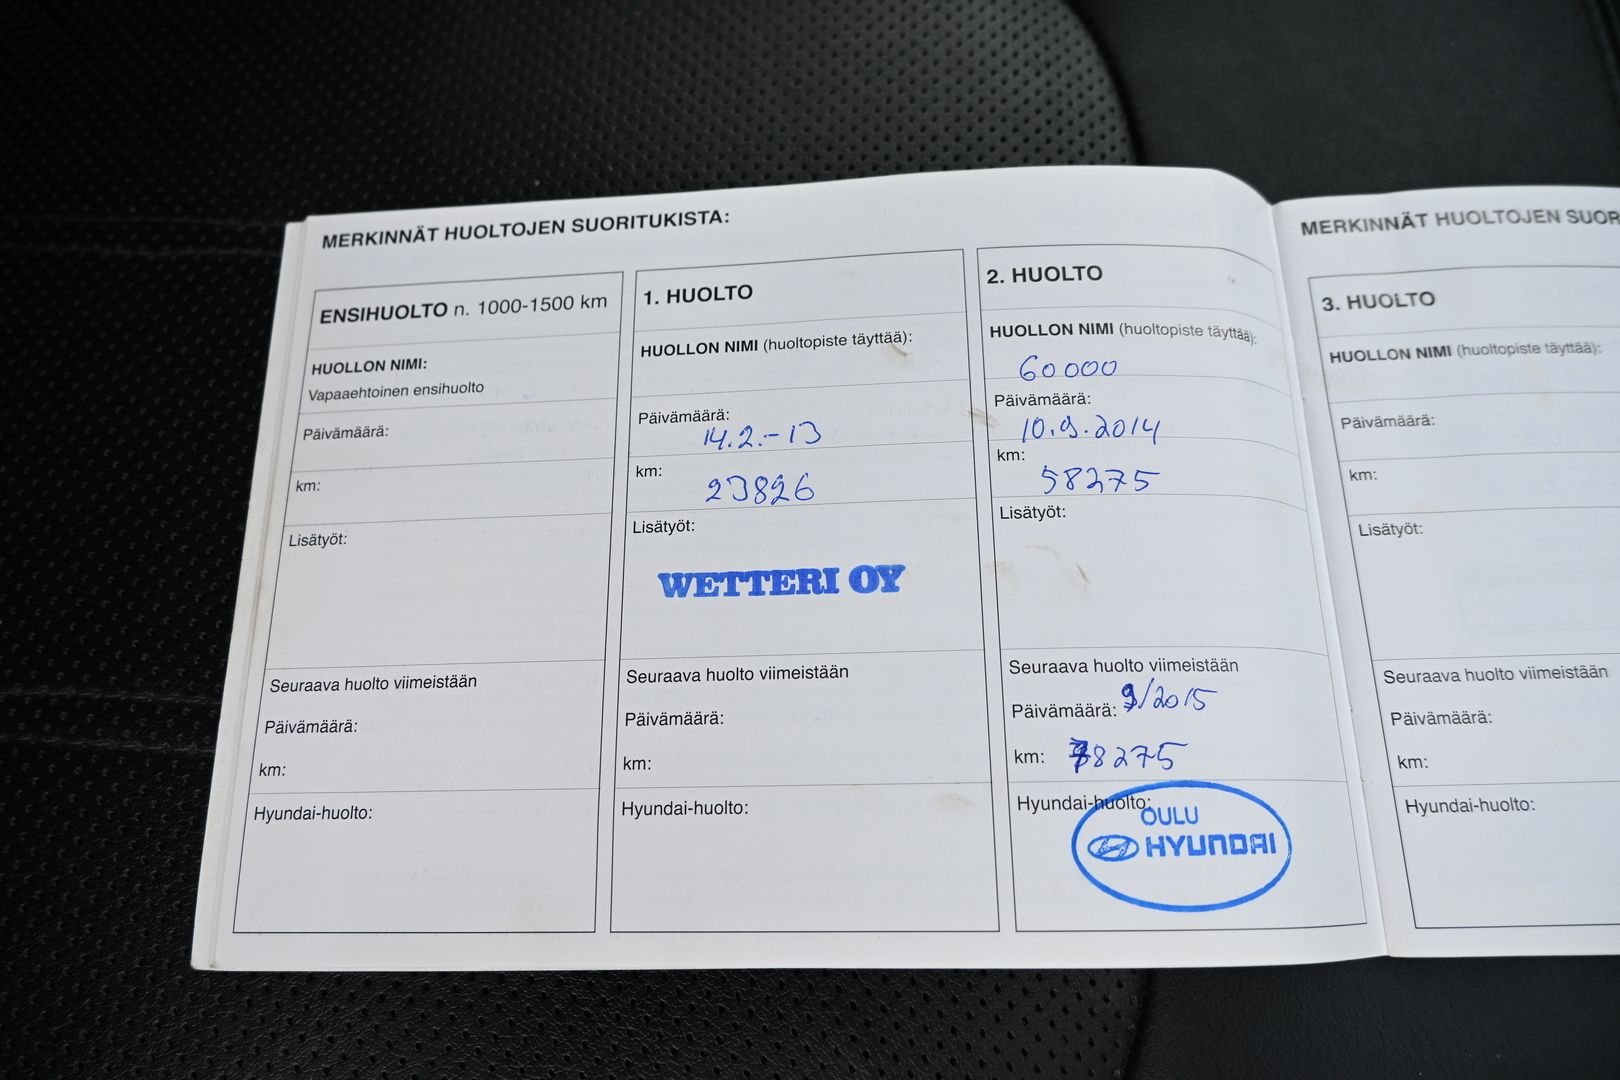 MERKINNÄT HUOLTOJEN SUORITUKISTA:
ENSIHUOLTO n. 1000-1500 km
HUOLLON NIMI:
Vapaaehtoinen ensihuolto
Päivämäärä:
km:
Lisätyöt:
Seuraava huolto viimeistään
Päivämäärä:
km:
Hyundai-huolto:
1. HUOLTO
HUOLLON NIMI (huoltopiste täyttää):
Päivämäärä:
14.2.-13
km:
23826
Lisätyöt:
WETTERI OY
Seuraava huolto viimeistään
Päivämäärä:
km:
Hyundai-huolto:
2. HUOLTO
HUOLLON NIMI (huoltopiste täyttää):
60000
Päivämäärä:
10.9.2014
km:
58275
Lisätyöt:
Seuraava huolto viimeistään
Päivämäärä: 9/2015
km: 78275
Hyundai-huolto:
OULU
HYUNDAI
MERKINNÄT HUOLTOJEN SUOR
3. HUOLTO
HUOLLON NIMI (huoltopiste täyttää):
Päivämäärä:
km:
Lisätyöt:
Seuraava huolto viimeistään
Päivämäärä:
km:
Hyundai-huolto: